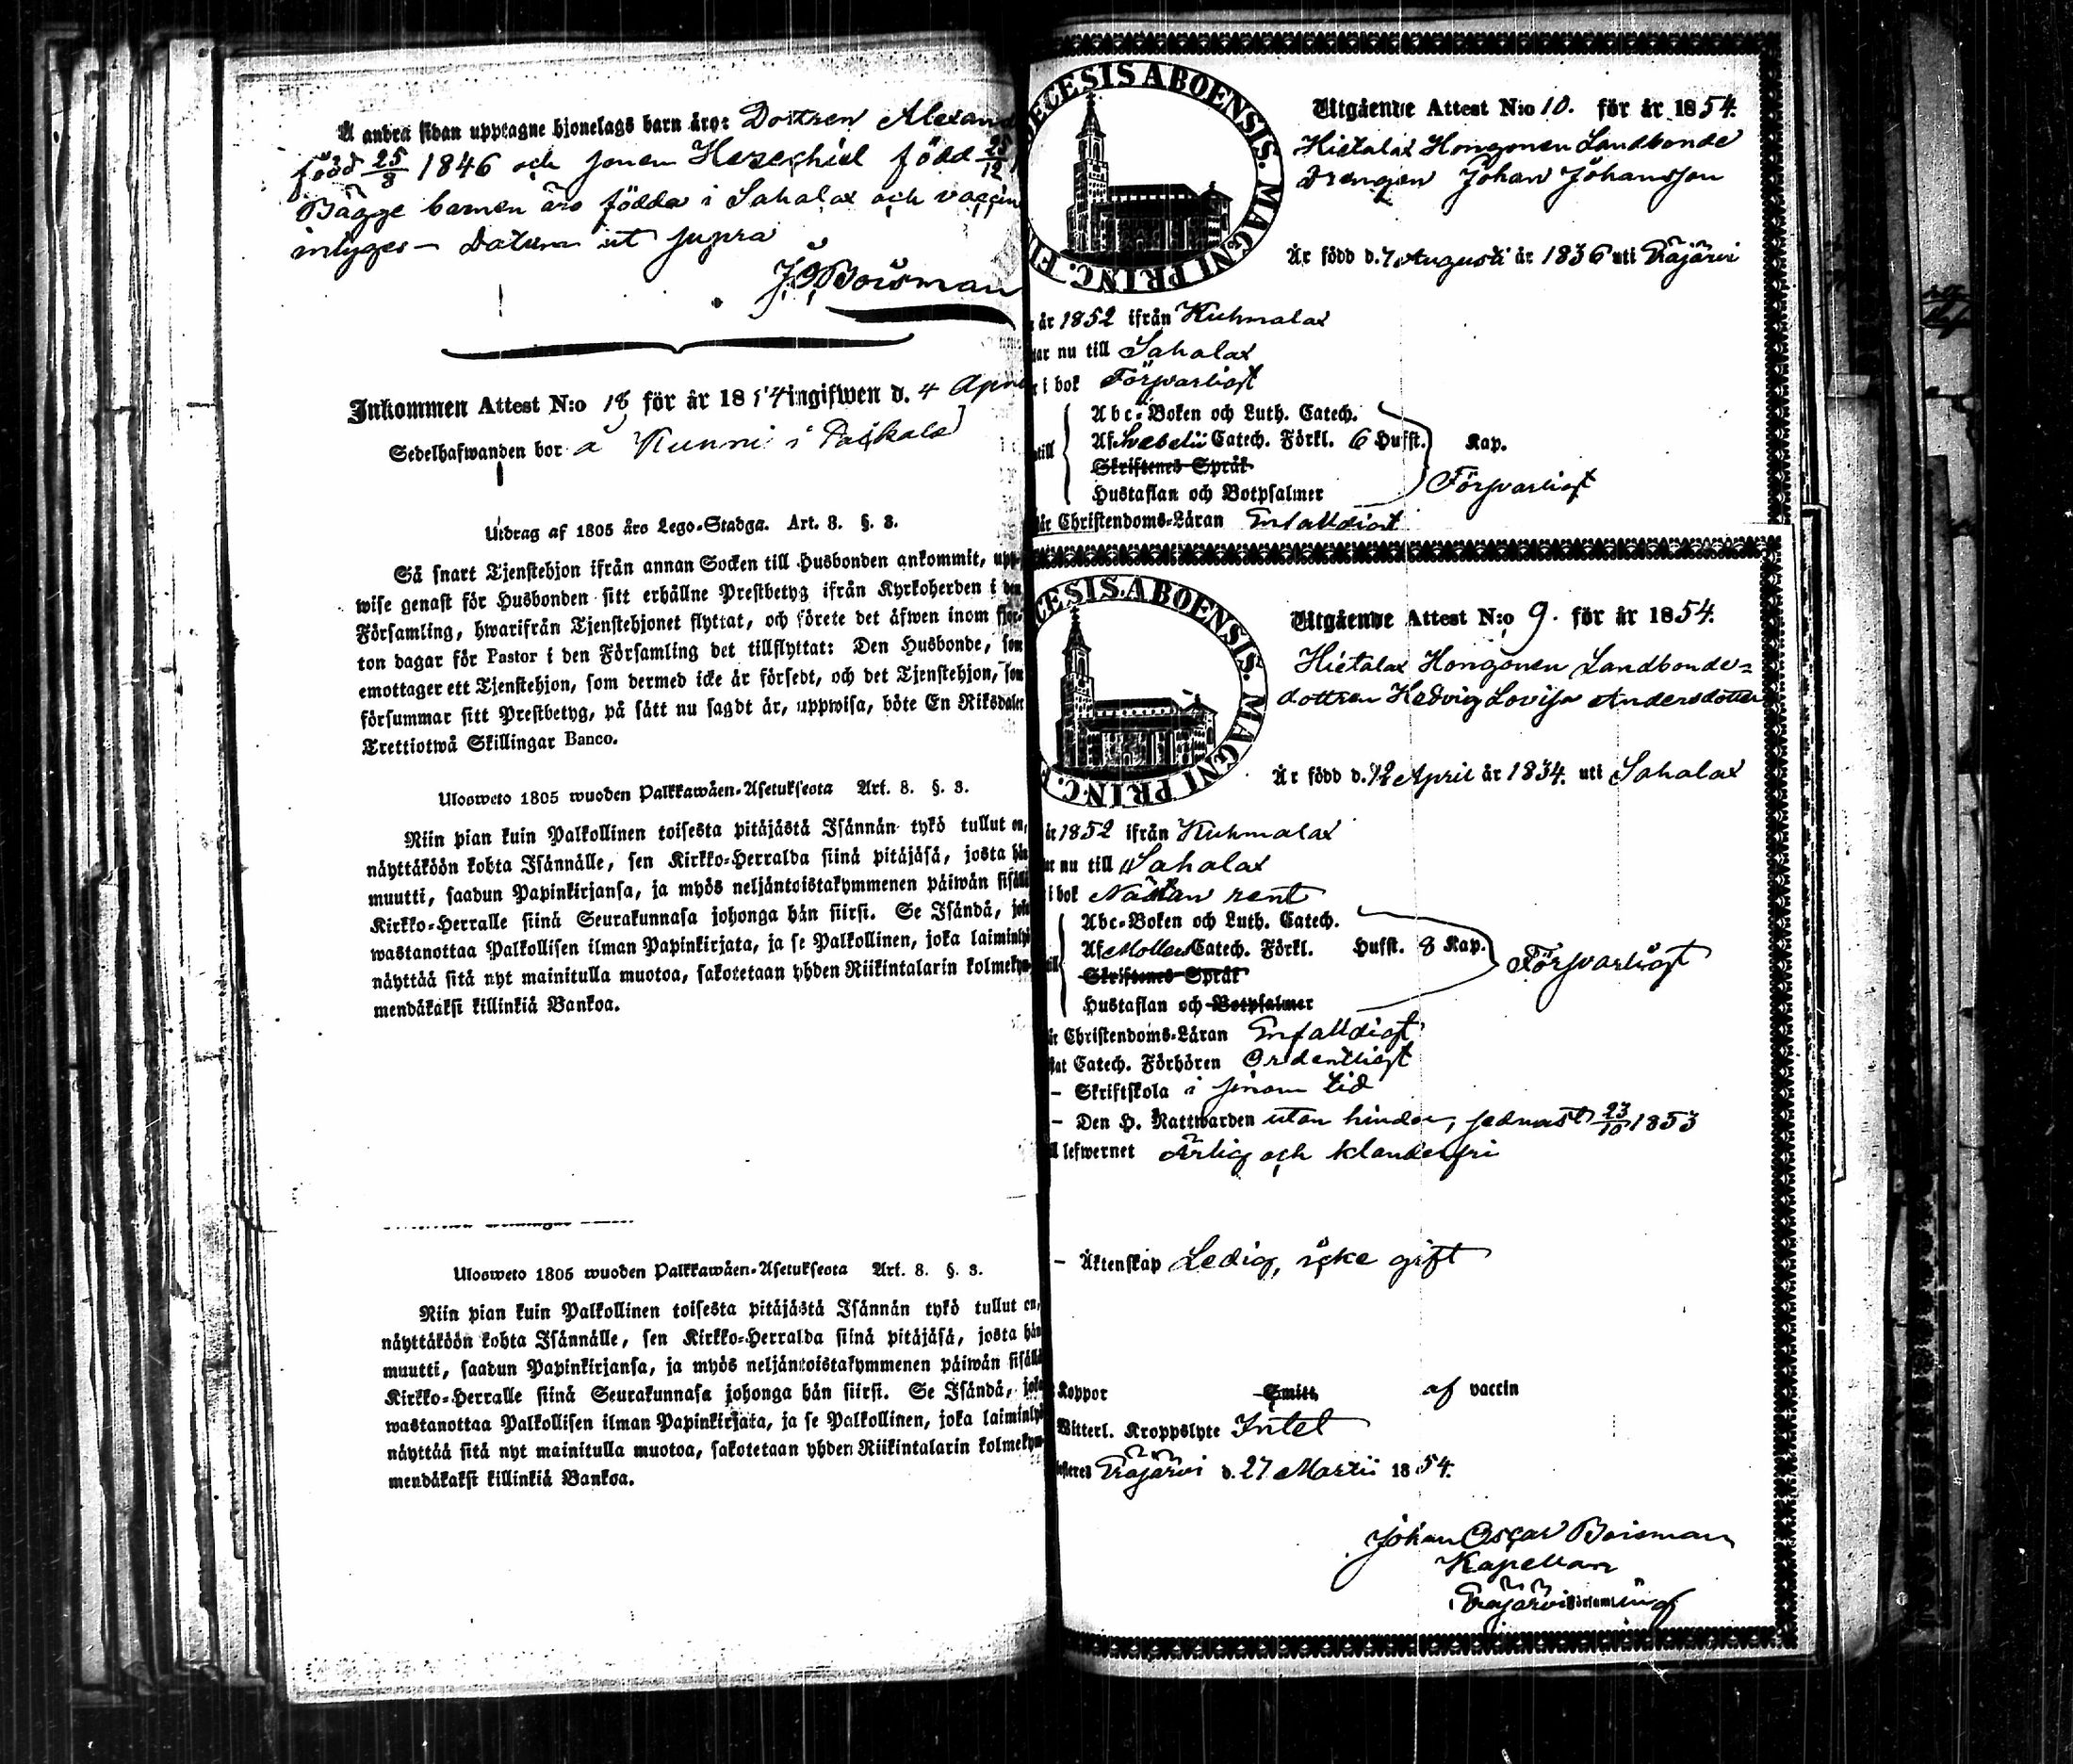 Å andra sidan upptagne hjonelags barn äro: Dottren Alexand
född 25/8 1846 och sonen Hezechiel född 25/12
Bägge barnen äro födda i Sahalax och vaccin
intyges – Datum ut supra
J. O. Boisman
Inkommen Attest N:o 18 för år 1854 ingifwen d. 4 Apri
Sedelhafwanden bor å Kunni i Paikala
Utdrag af 1805 års Lego-Stadga. Art. 8. §. 3.
Så snart Tjenstehjon ifrån annan Socken till Husbonden ankommit, upp-
wise genast för Husbonden sitt erhållne Prestbetyg ifrån Kyrkoherden i den
Församling, hwarifrån Tjenstehjonet flyttat, och förete det äfwen inom fjor-
ton dagar för Pastor i den Församling det tillflyttat: Den Husbonde, som
emottager ett Tjenstehjon, som dermed icke är försedt, och det Tjenstehjon, som
försummar sitt Prestbetyg, på sätt nu sagdt är, uppwisa, böte En Riksdaler
Trettiotwå Skillingar Banco.
Ulosweto 1805 wuoden Palkkawäen-Asetuksesta Art. 8. §. 3.
Niin pian kuin Palkollinen toisesta pitäjästä Isännän tykö tullut on,
näyttäköön kohta Isännälle, sen Kirkko-Herralda siinä pitäjäsä, josta hän
muutti, saadun Papinkirjansa, ja myös neljäntoistakymmenen päiwän sisällä
Kirkko-Herralle siinä Seurakunnasa johonga hän siirsi. Se Isändä, joka
wastanottaa Palkollisen ilman Papinkirjata, ja se Palkollinen, joka laiminlyö
näyttää sitä nyt mainitulla muotoa, sakotetaan yhden Riikintalarin kolmekym-
mendäkaksi killinkiä Bankoa.
Ulosweto 1805 wuoden Palkkawäen-Asetuksesta Art. 8. §. 3.
Niin pian kuin Palkollinen toisesta pitäjästä Isännän tykö tullut on,
näyttäköön kohta Isännälle, sen Kirkko-Herralda siinä pitäjäsä, josta hän
muutti, saadun Papinkirjansa, ja myös neljäntoistakymmenen päiwän sisällä
Kirkko-Herralle siinä Seurakunnasa johonga hän siirsi. Se Isändä, joka
wastanottaa Palkollisen ilman Papinkirjata, ja se Palkollinen, joka laiminlyö
näyttää sitä nyt mainitulla muotoa, sakotetaan yhden Riikintalarin kolmekym-
mendäkaksi killinkiä Bankoa.
ECESIS ABOENSIS. MAGNI PRINC. FI
Utgående Attest N:o 10. för år 1854.
Hietalax Hongonen Landbonde
drengen Johan Johansson
Är född d. 7 Augusti år 1836 uti Eräjärvi
år 1852 ifrån Kuhmalax
ar nu till Sahalax
i bok Försvarligt
Abc-Boken och Luth. Catech.
Af Svebelii Catech. Förkl. 6 Hufst. Kap.
Skriftenes Språk
Försvarligt
Hustaflan och Botpsalmer
är Christendoms-Läran Enfalldigt
CESIS. ABOENSIS. MAGNI PRINC. F
Utgående Attest N:o 9. för år 1854.
Hietalax Hongonen Landbonde-
dottren Hedvig Lovisa Andersdotter
Är född d. 12 April år 1834. uti Sahalax
år 1852 ifrån Kuhmalax
ar nu till Sahalax
i bok Nästan rent
Abc-Boken och Luth. Catech.
Af Mollers Catech. Förkl. Hufst. 8 Kap. Försvarligt
Skriftenes Språk
Hustaflan och Botpsalmer
är Christendoms-Läran Enfalldigt
tat Catech. Förhören Ordentligt
– Skriftskola i sinom tid
– Den H. Nattwarden utan hinder, sednast 23/10 1853
ll lefwernet Ärlig och klanderfri
– Äktenskap Ledig, icke gift
Koppor Smitt, af vaccin
Witterl. Kroppslyte Intet
esteres Eräjärvi d. 27 Martii 1854.
Johan Oscar Boisman
Kapellan
i Eräjärvi Församling